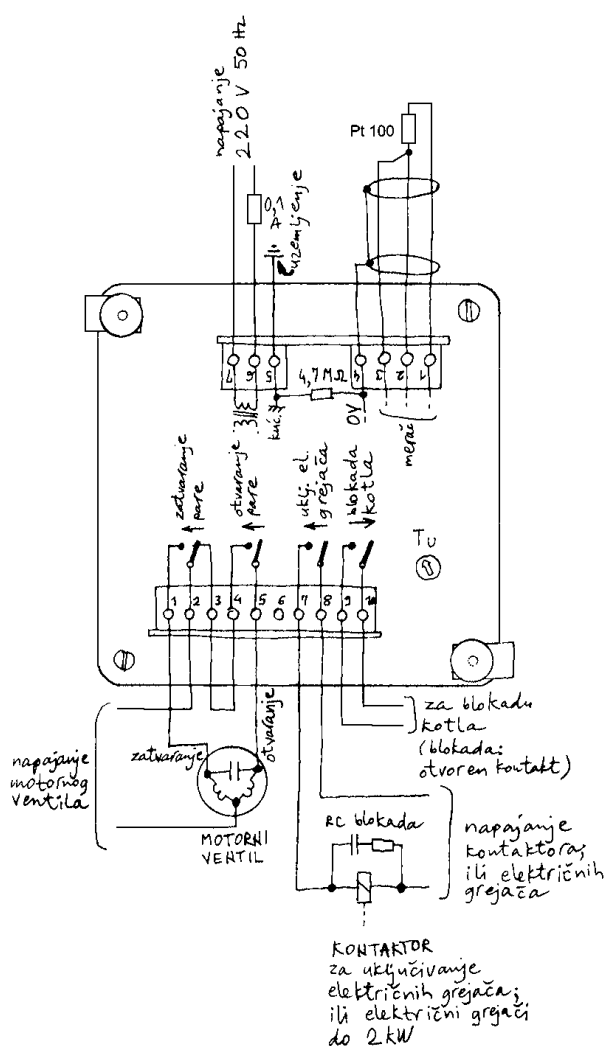 napajanje
220 V 50 Hz
0,1 A
uzemljenje
Pt 100
7 6 5
4 3 2 1
4,7 MΩ
kuć.
0V
merač
zatvaranje
pare
otvaranje
pare
uklj. el.
grejača
blokada
kotla
Tu
1 2 3 4 5 6 7 8 9 10
napajanje
motornog
ventila
zatvaranje
otvaranje
MOTORNI
VENTIL
za blokadu
kotla
(blokada:
otvoren kontakt)
RC blokada
napajanje
kontaktora;
ili električnih
grejača
KONTAKTOR
za uključivanje
električnih grejača;
ili električni grejači
do 2 kW